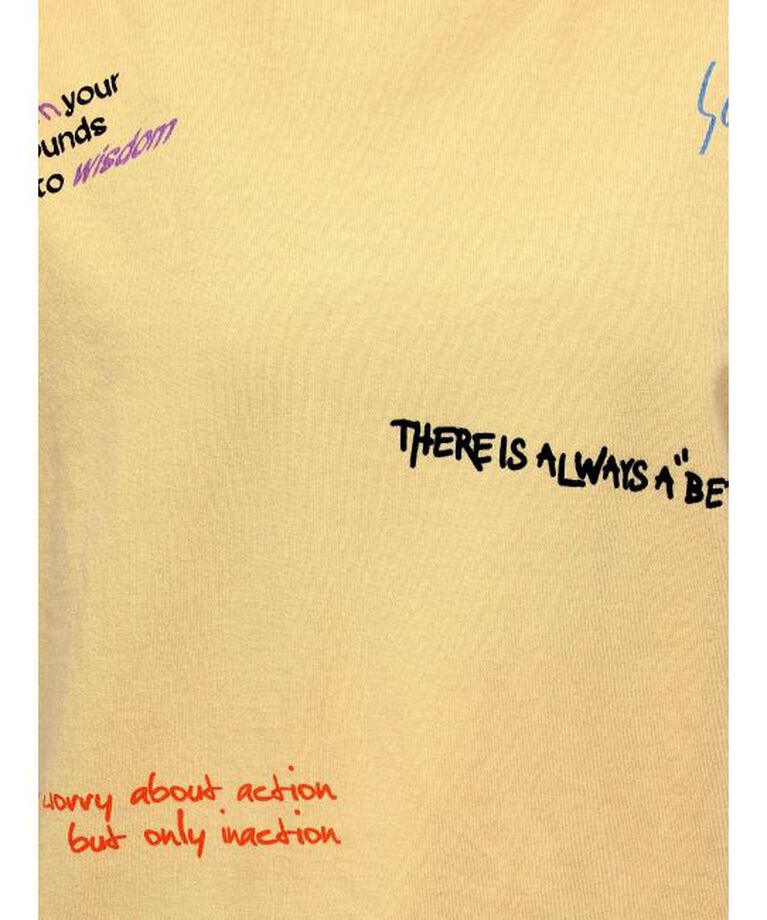 your
to wisdom
THERE IS ALWAYS A "BE
worry about action
but only inaction